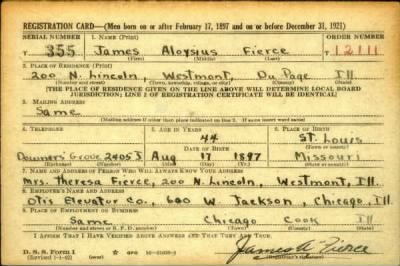 REGISTRATION CARD—(Men born on or after February 17, 1897 and on or before December 31, 1921)
SERIAL NUMBER 1. NAME (Print) ORDER NUMBER
T 355 James Aloysius Fierce T 12111
(First) (Middle) (Last)
2. PLACE OF RESIDENCE (Print)
200 N. Lincoln, Westmont, Du Page Ill
(Number and street) (Town, township, village, or city) (County) (State)
[THE PLACE OF RESIDENCE GIVEN ON THE LINE ABOVE WILL DETERMINE LOCAL BOARD
JURISDICTION; LINE 2 OF REGISTRATION CERTIFICATE WILL BE IDENTICAL]
3. MAILING ADDRESS
Same
[Mailing address if other than place indicated on line 2. If same insert word same]
4. TELEPHONE 5. AGE IN YEARS 6. PLACE OF BIRTH
44 St. Louis
Downers Grove 2405 J Aug 17 1897 Missouri
7. NAME AND ADDRESS OF PERSON WHO WILL ALWAYS KNOW YOUR ADDRESS
Mrs. Theresa Fierce, 200 N. Lincoln, Westmont, Ill.
8. EMPLOYER'S NAME AND ADDRESS
Otis Elevator Co., 600 W. Jackson, Chicago, Ill.
9. PLACE OF EMPLOYMENT OR BUSINESS
Same Chicago Cook Ill
(Number and street or R. F. D. number) (Town) (County) (State)
I AFFIRM THAT I HAVE VERIFIED ABOVE ANSWERS AND THAT THEY ARE TRUE.
D. S. S. Form 1
(Revised 1-1-42) (over)
James A Fierce